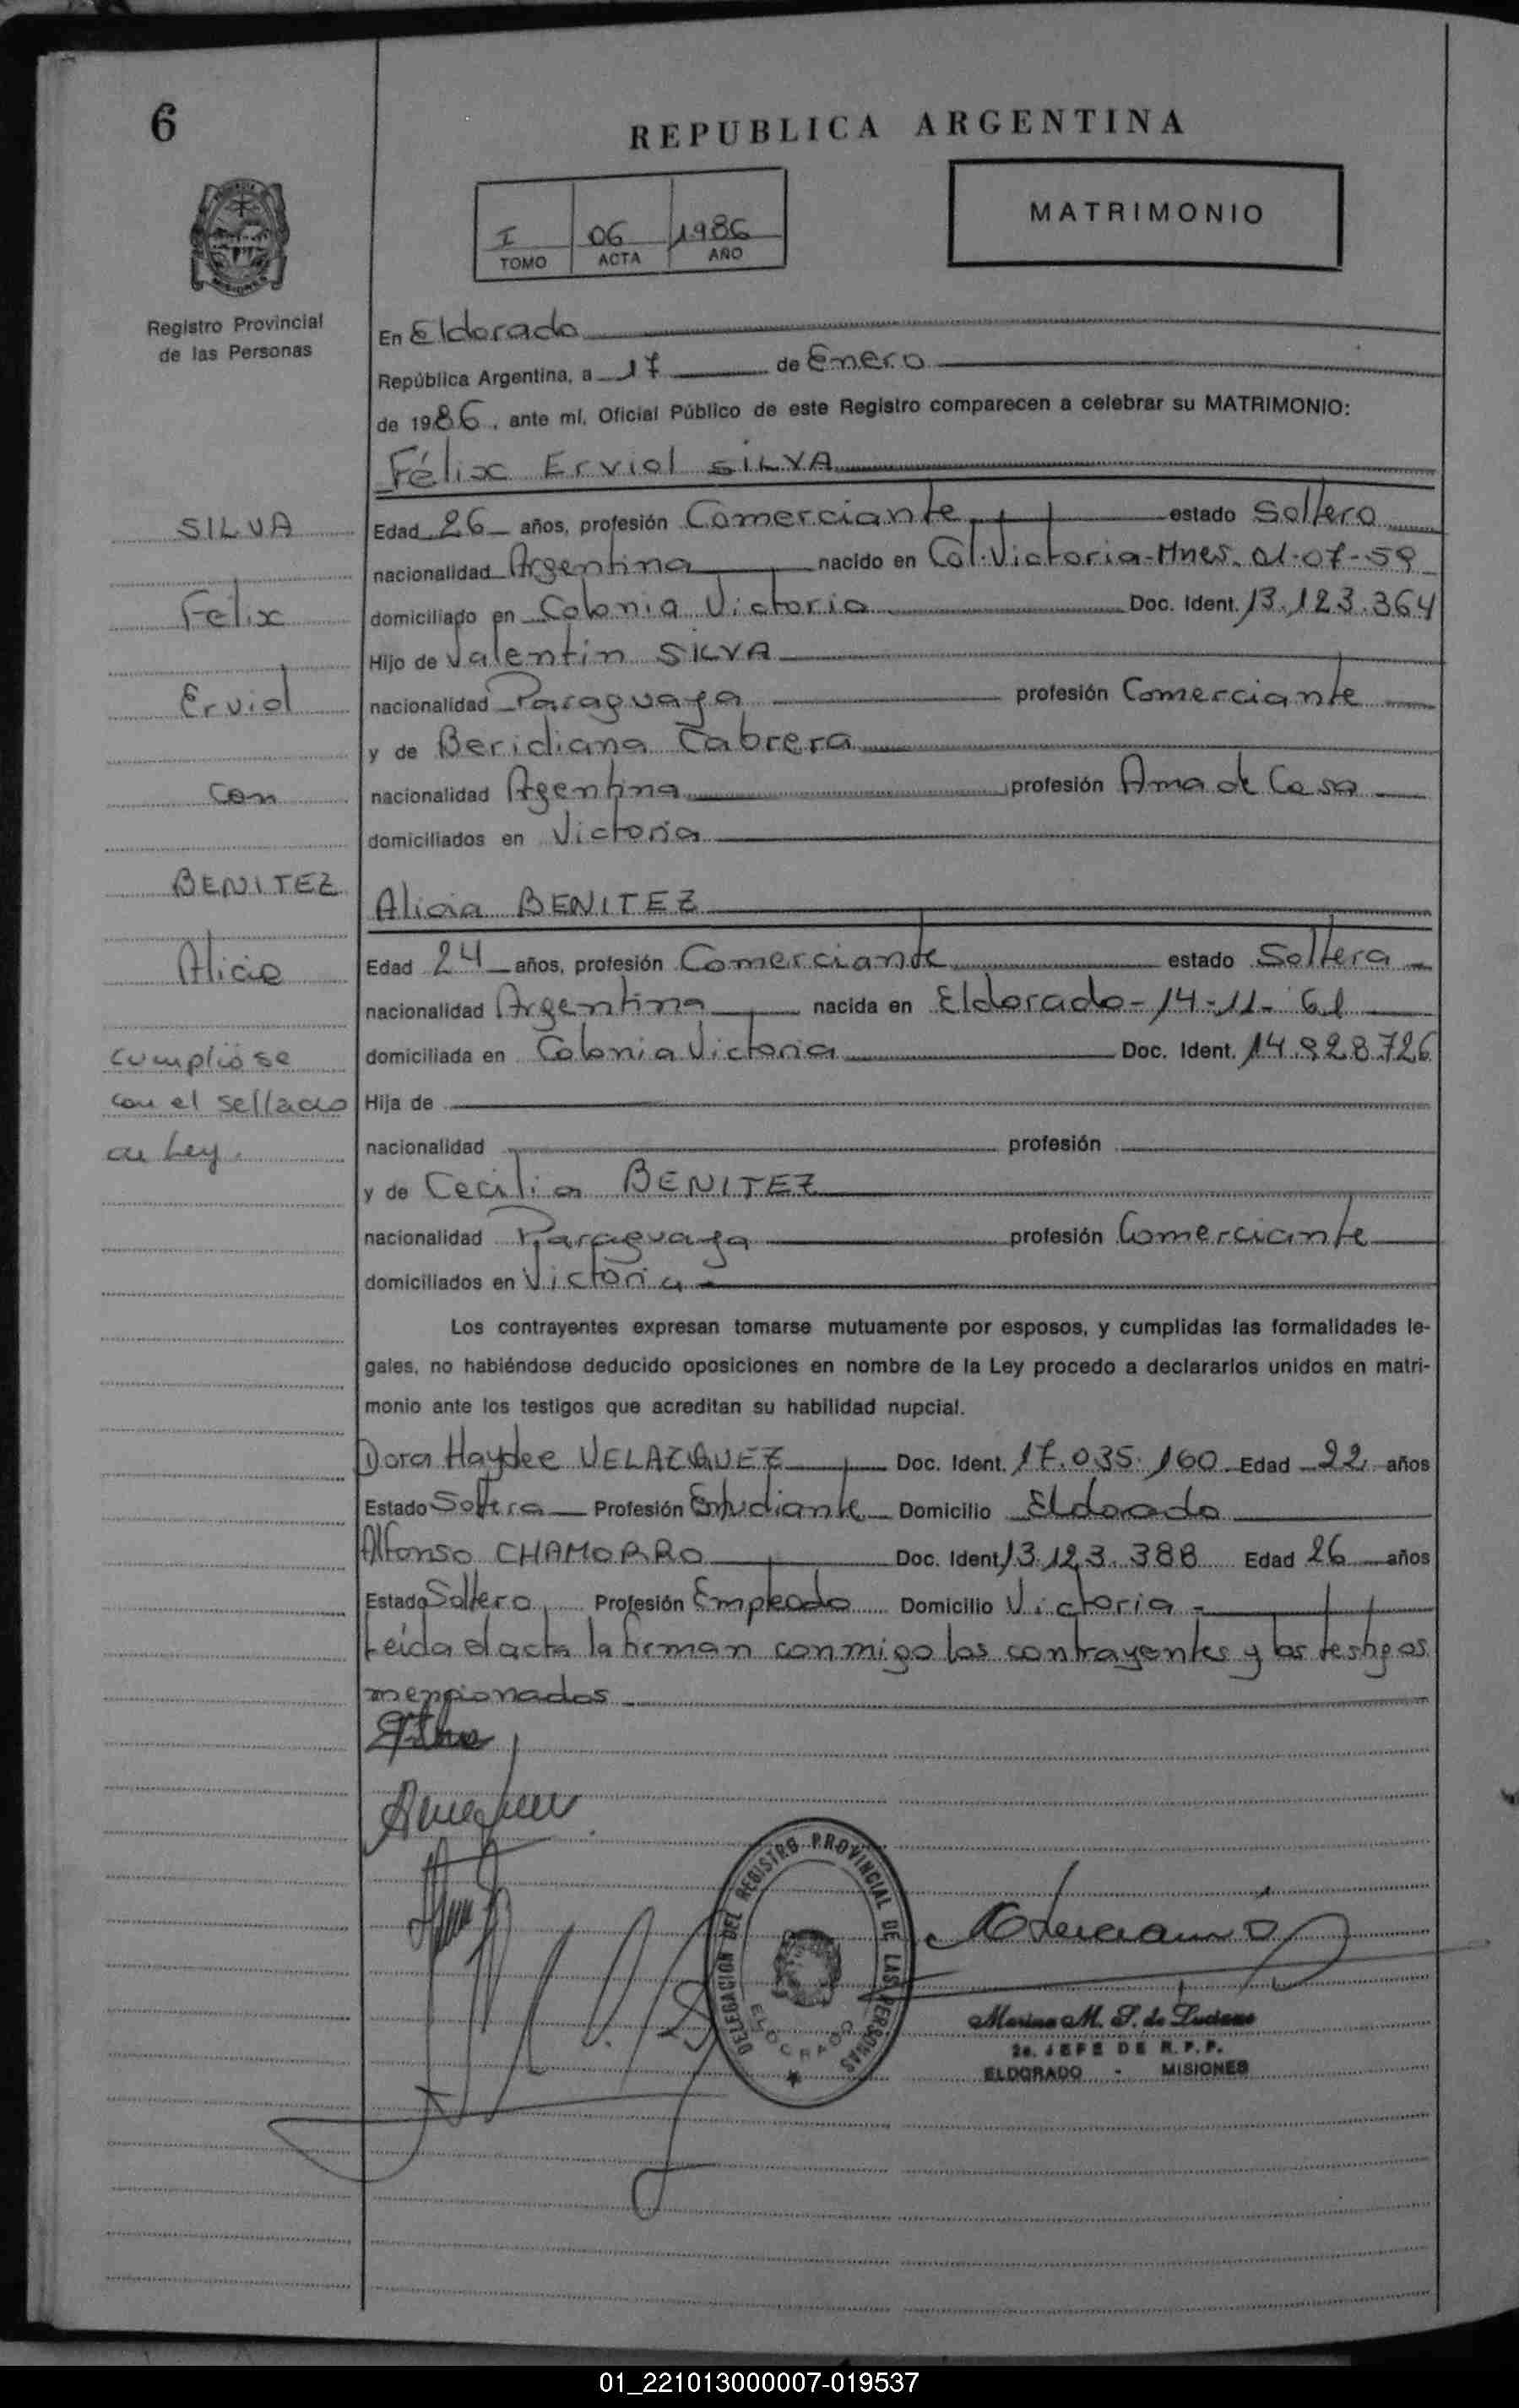 6
REPUBLICA ARGENTINA
I 06 1986
TOMO ACTA AÑO
MATRIMONIO
Registro Provincial
de las Personas
En Eldorado
República Argentina, a 17 de Enero
de 1986, ante mí, Oficial Público de este Registro comparecen a celebrar su MATRIMONIO:
Félix Erviol SILVA
SILVA
Felix
Erviol
con
BENITEZ
Alicia
cumplióse
con el sellado
de Ley.
Edad 26 años, profesión Comerciante estado Soltero
nacionalidad Argentina nacido en Col. Victoria-Mnes. 01-07-59
domiciliado en Colonia Victoria Doc. Ident. 13.123.364
Hijo de Valentin SILVA
nacionalidad Paraguaya profesión Comerciante
y de Beridiana Cabrera
nacionalidad Agentina profesión Ama de Casa
domiciliados en Victoria
Alicia BENITEZ
Edad 24 años, profesión Comerciante estado Soltera
nacionalidad Argentina nacida en Eldorado-14-11-61
domiciliada en Colonia Victoria Doc. Ident. 14.928.726
Hija de
nacionalidad profesión
y de Cecilia BENITEZ
nacionalidad Paraguaya profesión Comerciante
domiciliados en Victoria
Los contrayentes expresan tomarse mutuamente por esposos, y cumplidas las formalidades le-
gales, no habiéndose deducido oposiciones en nombre de la Ley procedo a declararlos unidos en matri-
monio ante los testigos que acreditan su habilidad nupcial.
Dora Haydee VELAZQUEZ Doc. Ident. 17.035.160 Edad 22 años
Estado Soltera Profesión Estudiante Domicilio Eldorado
Alfonso CHAMORRO Doc. Ident. 13.123.388 Edad 26 años
Estado Soltero Profesión Empleado Domicilio Victoria
Leída el acta la firman conmigo los contrayentes y los testigos
mencionados
DELEGACION DEL REGISTRO PROVINCIAL DE LAS PERSONAS
ELDORADO
Marina M. S. de Luciano
2a. JEFE DE R.P.P.
ELDORADO - MISIONES
01_221013000007-019537